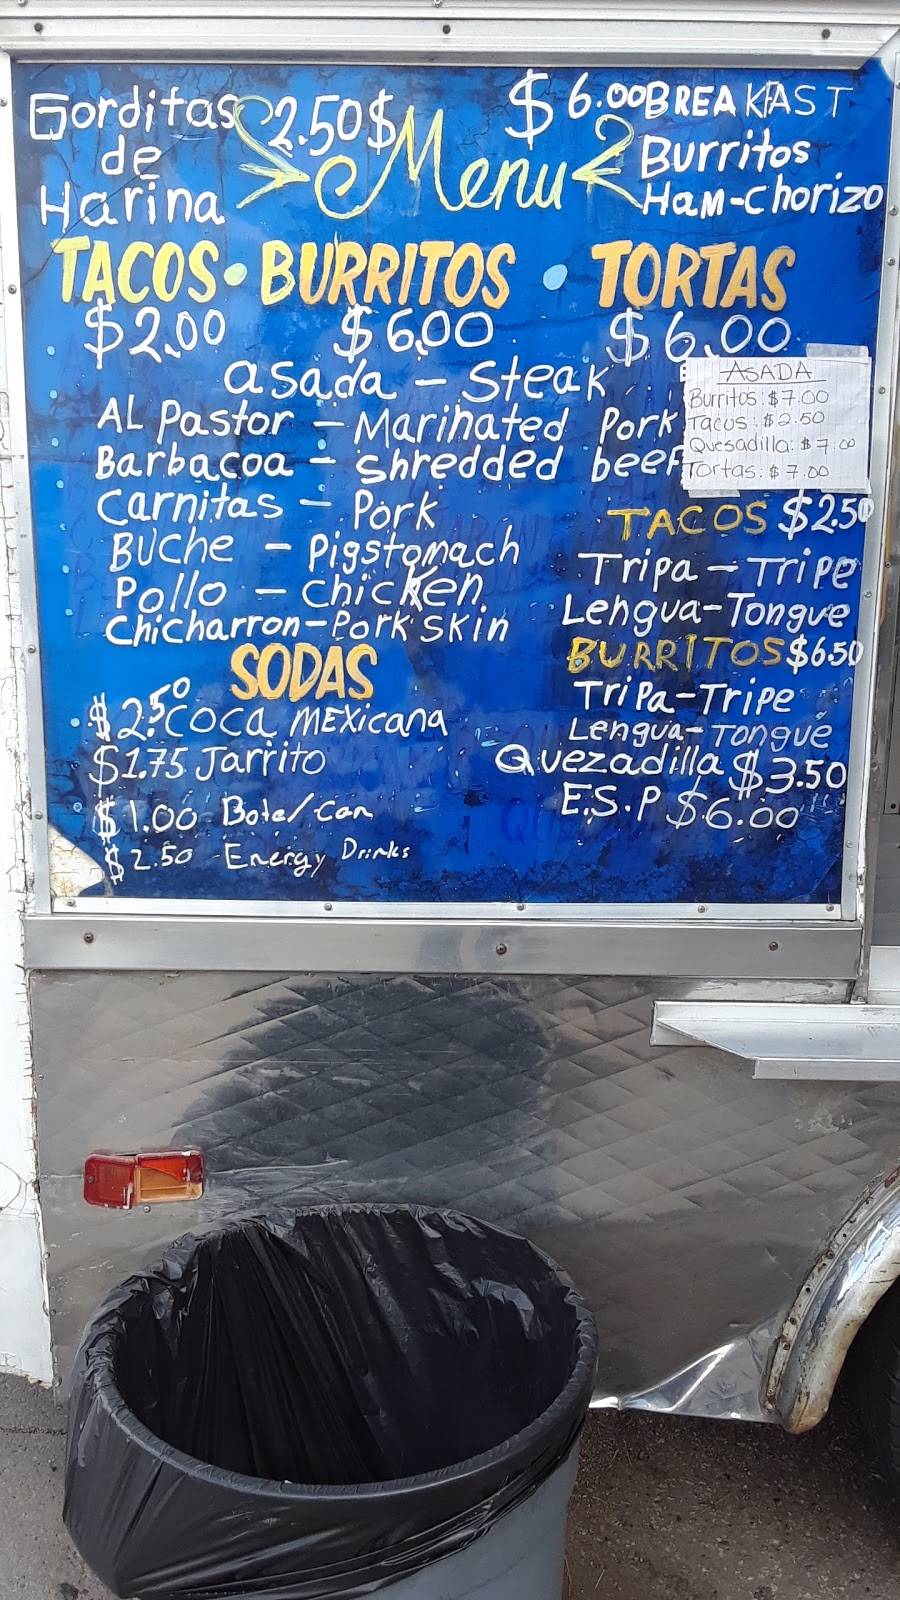 Gorditas 2.50$
de
Harina
Menu
$6.00 BREAKFAST
Burritos
Ham-Chorizo
TACOS • BURRITOS • TORTAS
$2.00 $6.00 $6.00
asada - Steak
AL Pastor - Marinated Pork
Barbacoa - Shredded beef
Carnitas - Pork
BUChe - Pigstomach
Pollo - Chicken
Chicharron-Pork skin
ASADA
Burritos: $7.00
Tacos: $2.50
Quesadilla: $7.00
Tortas: $7.00
TACOS $2.50
Tripa - Tripe
Lengua-Tongue
BURRITOS $6.50
Tripa-Tripe
Lengua-Tongue
Quezadilla $3.50
E.S.P $6.00
SODAS
$2.50 COCA MEXicana
$1.75 Jarrito
$1.00 Bote/can
$2.50 Energy Drinks